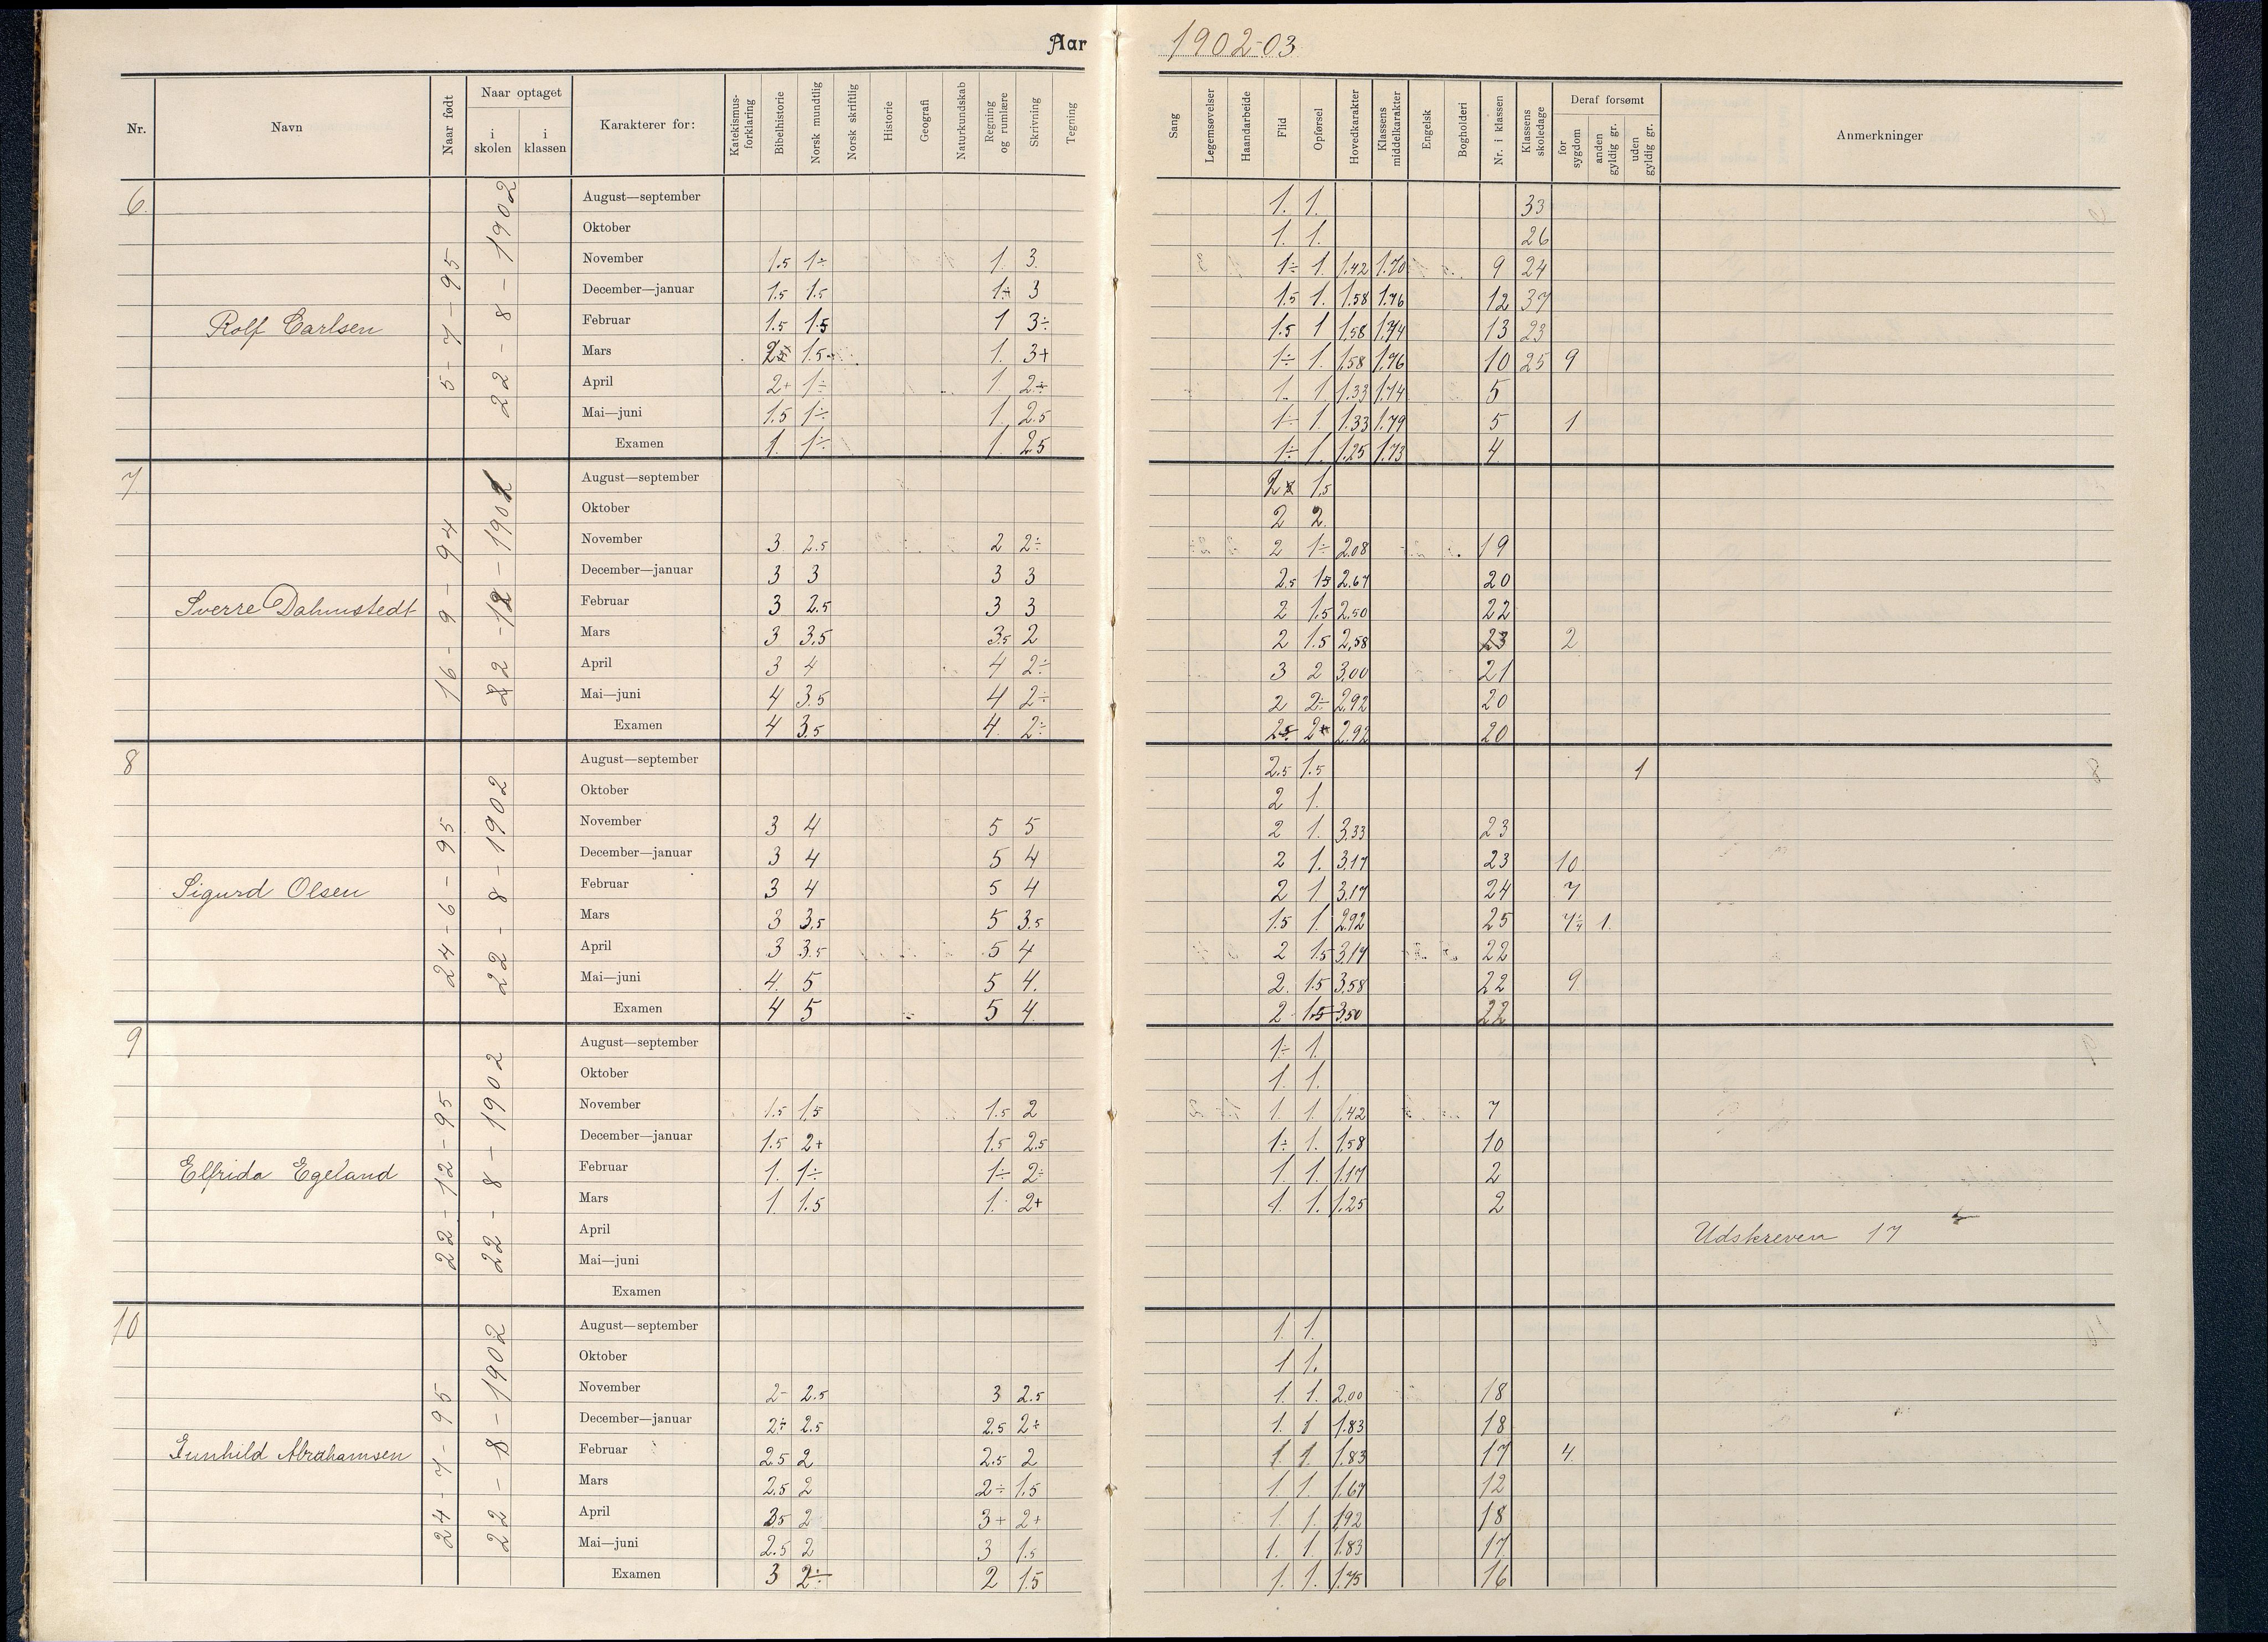 Aar 1902-03
Nr. Navn Naar født Naar optaget i skolen i klassen Karakterer for: Katekismus-forklaring Bibelhistorie Norsk mundtlig Norsk skriftlig Historie Geografi Naturkundskab Regning og rumlære Skrivning Tegning Sang Legemsøvelser Haandarbeide Flid Opførsel Hovedkarakter Klassens middelkarakter Engelsk Bogholderi Nr. i klassen Klassens skoledage Deraf forsømt for sygdom anden gyldig gr. uden gyldig gr. Anmerkninger
6. Rolf Carlsen 5-7-95 22-8-1902
August—september 1. 1. 33
Oktober 1. 1. 26
November 1.5 1÷ 1. 3. 1÷ 1. 1.42 1.70 9 24
December—januar 1.5 1.5 1÷ 3 1.5 1. 1.58 1.76 12 37
Februar 1.5 1.5 1 3÷ 1.5 1 1.58 1.74 13 23
Mars 1.5 1. 3+ 1÷ 1. 1.58 1.76 10 25 9
April 2+ 1÷ 1. 2÷ 1. 1 1.33 1.74 5
Mai—juni 1.5 1÷ 1. 2.5 1÷ 1. 1.33 1.79 5 1
Examen 1. 1÷ 1. 2.5 1÷ 1. 1.25 1.73 4
7. Sverre Dahmstedt 16-9-94
August—september 2 1.5
Oktober 2 2.
November 3 2.5 2 2÷ 2 1÷ 2.08 19
December—januar 3 3 3 3 2.5 1.5 2.67 20
Februar 3 2.5 3 3 2 1.5 2.50 22
Mars 3 3.5 3.5 2 2 1.5 2.58 23 2
April 3 4 4 2÷ 3 2 3.00 21
Mai—juni 4 3.5 4 2÷ 2 2÷ 2.92 20
Examen 4 3.5 4. 2÷ 2.92 20
8 Sigurd Olsen 24-6-95 22-8-1902
August—september 2.5 1.5 1
Oktober 2 1.
November 3 4 5 5 2 1. 3.33 23
December—januar 3 4 5 4 2 1. 3.17 23 10.
Februar 3 4 5 4 2 1 3.17 24 7
Mars 3 3.5 5 3.5 1.5 1. 2.92 25 1.
April 3 3.5 5 4 2 1.5 3.17 22
Mai—juni 4. 5 5 4. 2. 1.5 3.58 22 9
Examen 4 5 5 4. 2 1.5 3.50 22
9 Elfrida Egeland 22-12-95 22-8-1902
August—september 1÷ 1.
Oktober 1. 1.
November 1.5 1.5 1.5 2 1. 1. 1.42 7
December—januar 1.5 2+ 1.5 2.5 1÷ 1. 1.58 10
Februar 1. 1÷ 1÷ 2÷ 1. 1. 1.17 2
Mars 1. 1.5 1. 2+ 1. 1. 1.25 2
April Udskreven 17
Mai—juni
Examen
10 Gunhild Abrahamsen 24-7-95 22-8-1902
August—september 1. 1.
Oktober 1 1.
November 2- 2.5 3 2.5 1. 1. 2.00 18
December—januar 2÷ 2.5 2.5 2÷ 1. 1 1.83 18
Februar 2.5 2 2.5 2 1. 1. 1.83 17 4.
Mars 2.5 2 2÷ 1.5 1. 1. 1.67 12
April 3.5 2 3+ 2+ 1. 1. 1.92 18
Mai—juni 2.5 2 3 1.5 1. 1. 1.83 17
Examen 3 2÷ 2 1.5 1. 1. 1.75 16